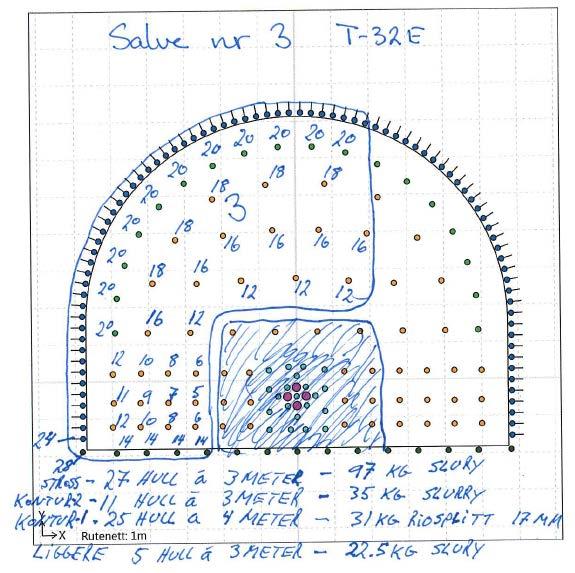 Salve nr 3 T-32E
20 20 20 20 20
20 18 18
20 18
3
20 18
20 16 16 16 16
20 18 16
12 12 12
20 16 12
12 10 8 6
11 9 7 5
12 10 8 6
24 14 14 14 14
28
STROSS - 27 HULL á 3 METER - 97 KG SLURY
KONTUR-2 - 11 HULL á 3 METER - 35 KG SLURRY
KONTUR-1 - 25 HULL á 4 METER - 31 KG RIOSPLITT 17 MM
Y
X Rutenett: 1m
LIGGERE 5 HULL á 3 METER - 22.5 KG SLURY